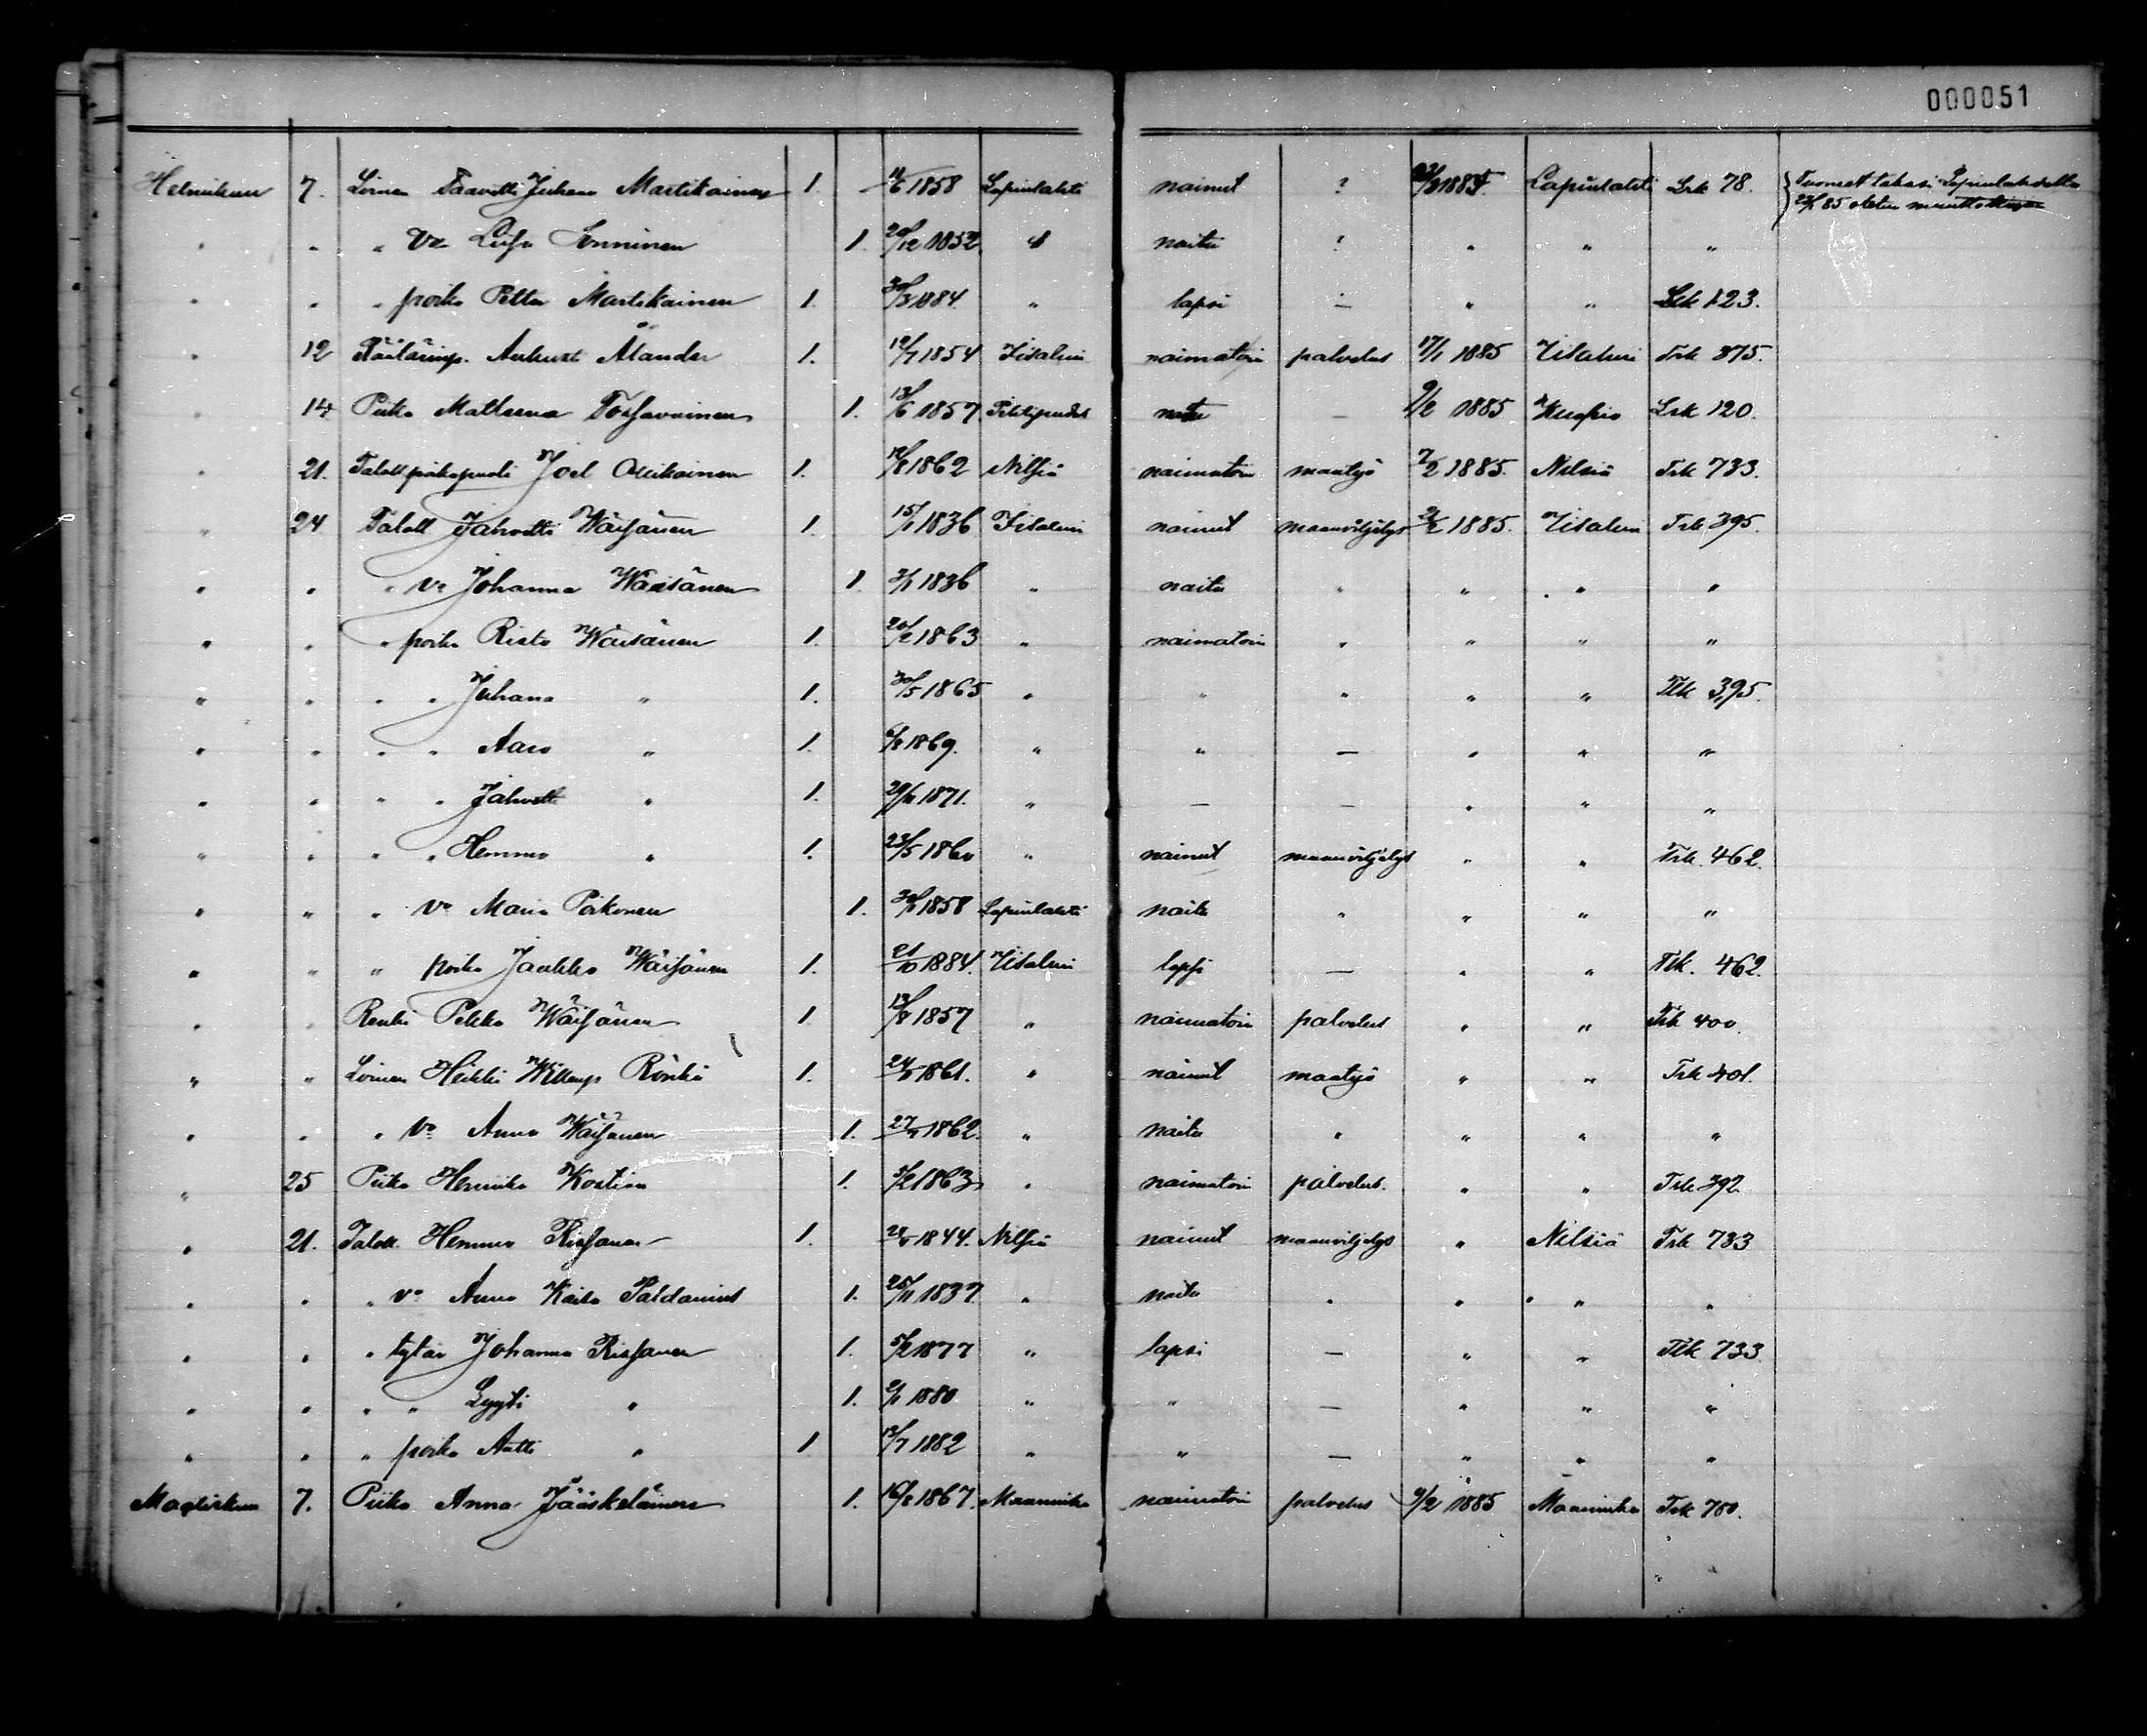 000051
Helmikuu 7. Loinen Taavetti Juhana Martikainen 1. 11/6 1858 Lapinlahti nainut ? 1884. Lapinlahti Lrk 78. Tuonnet takasi Lapinlahdella 85 oletu muutto
" " " Vo Liisa Sonninen 1. 20/12 1852 " naitu ? " " "
" " " poika Petter Martikainen 1. 30/3 1884. " lapsi — " " Lrk 123.
" 12 Räätälinp. Aukusti Ålander 1. 19/7 1854 Iisalmi naimatoin palvelus 17/1 1885 Iisalmi Trk 375.
" 14 Piika Matleena Tossavainen 1. 13/6 1857. naitu — 9/2 1885 Kuopio Lrk 120.
" 21. Talollpoikapuoli Joel Ollikainen 1. 12/8 1862 Nilsiä naimatoin maatyö 7/2 1885. Nilsiä Trk 733.
" 24 Taloll Jahvetti Wäisänen 1. 15/1 1836 Iisalmi nainut maanviljelys 21/2 1885. Iisalmi Trk 395.
" " " Vo Johanna Wäisänen 1. 3/1 1836 " naitu " " " "
" " " poika Risto Wäisänen 1. 20/2 1863 " naimatoin " " " "
" " " " Juhana " 1. 30/5 1865 " " " " " Trk 395.
" " " " Aaro " 1. 6/8 1869. " " — " " "
" " " " Jahvetti " 1. 29/11 1871. " — — " " "
" " " " Hemmo " 1. 23/5 1860 " nainut maanviljelys " " Trk. 462.
" " " Vo Maria Pöikönen 1. 1858 Lapinlahti naitu " " " "
" " " poika Jaakko Wäisänen 1. 21/10 1884. Iisalmi lapsi — " " Trk. 462.
" " Renki Pekka Wäisänen 1. 13/8 1857 " naimatoin palvelus " " Trk 400.
" " Loinen Heikki Willenp Rönkä 1. 1861. " nainut maatyö " " Trk 401.
" " " Vo Anna Wäisänen 1. 1862. " naitu " " " "
" 25 Piika Henriika Kostian 1. 5/2 1863 " naimatoin palvelus. " " Trk 392
" 21. Taloll. Hemmo Rissanen 1. 1844. Nilsiä nainut maanviljelys " Nilsiä Trk 733
" " " vo Anna Kaisa Paldanius 1. 25/11 1837 " naitu " " " "
" " " tytär Johanna Rissanen 1. 5/2 1877 " lapsi — " " Trk 733
" " " " Lyyti " 1. 1880 " " — " " "
" " " poika Antti " 1 12/7 1882 " " — " " "
Maaliskuu 7. Piika Anna Jääskeläinen 1. 16/8 1867. Maaninka naimatoin palvelus 9/2 1885 Maaninka Trk 750.